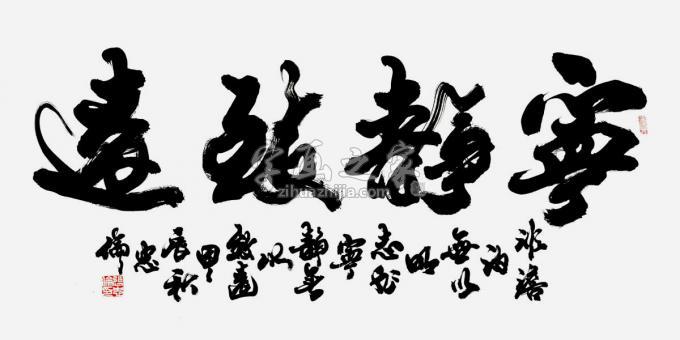 寧靜致遠
非澹
泊
無以
明
志非
寧
靜無
以
致遠
甲
辰秋
忠
倫
字画之家
zihuazhijia.com